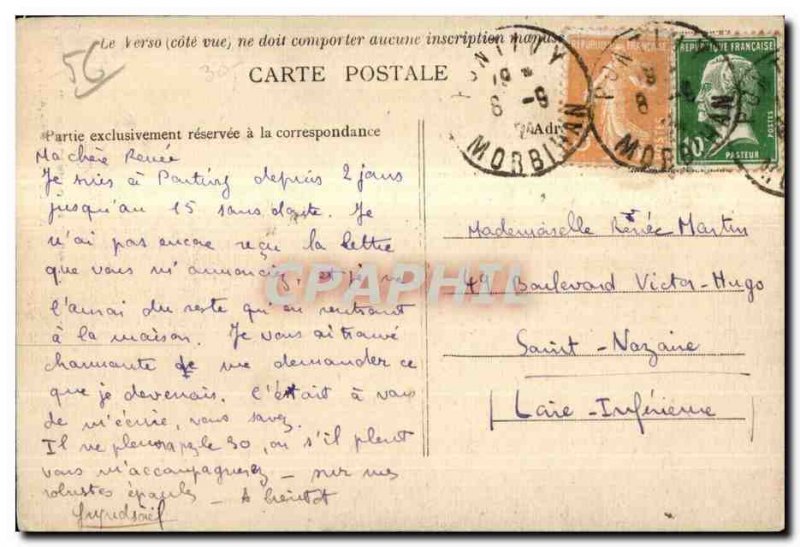 Le Verso (côté vue) ne doit comporter aucune inscription manus
56
CARTE POSTALE
Partie exclusivement réservée à la correspondance
Adr
PONTIVY
MORBIHAN
PONTIVY
MORBIHAN
REPUBLIQUE FRANÇAISE
REPUBLIQUE FRANÇAISE
POSTES
PASTEUR
Ma chère Renée
Je suis à Pontivy depuis 2 jours
jusqu'au 15 sans doute. Je
n'ai pas encore reçu la lettre
que vous m'annonciez, et je ne
l'aurai du reste qu'en rentrant
à la maison. Je vous ai trouvé
charmante de me demander ce
que je devenais. C'était à vous
de m'écrire, vous savez.
Il ne pleuvra le 30, ou s'il pleut
vous m'accompagnerez _ sur mes
robustes épaules _ A bientôt
Mademoiselle Renée Martin
49 Boulevard Victor-Hugo
Saint-Nazaire
Loire-Inférieure
CPAPHIL